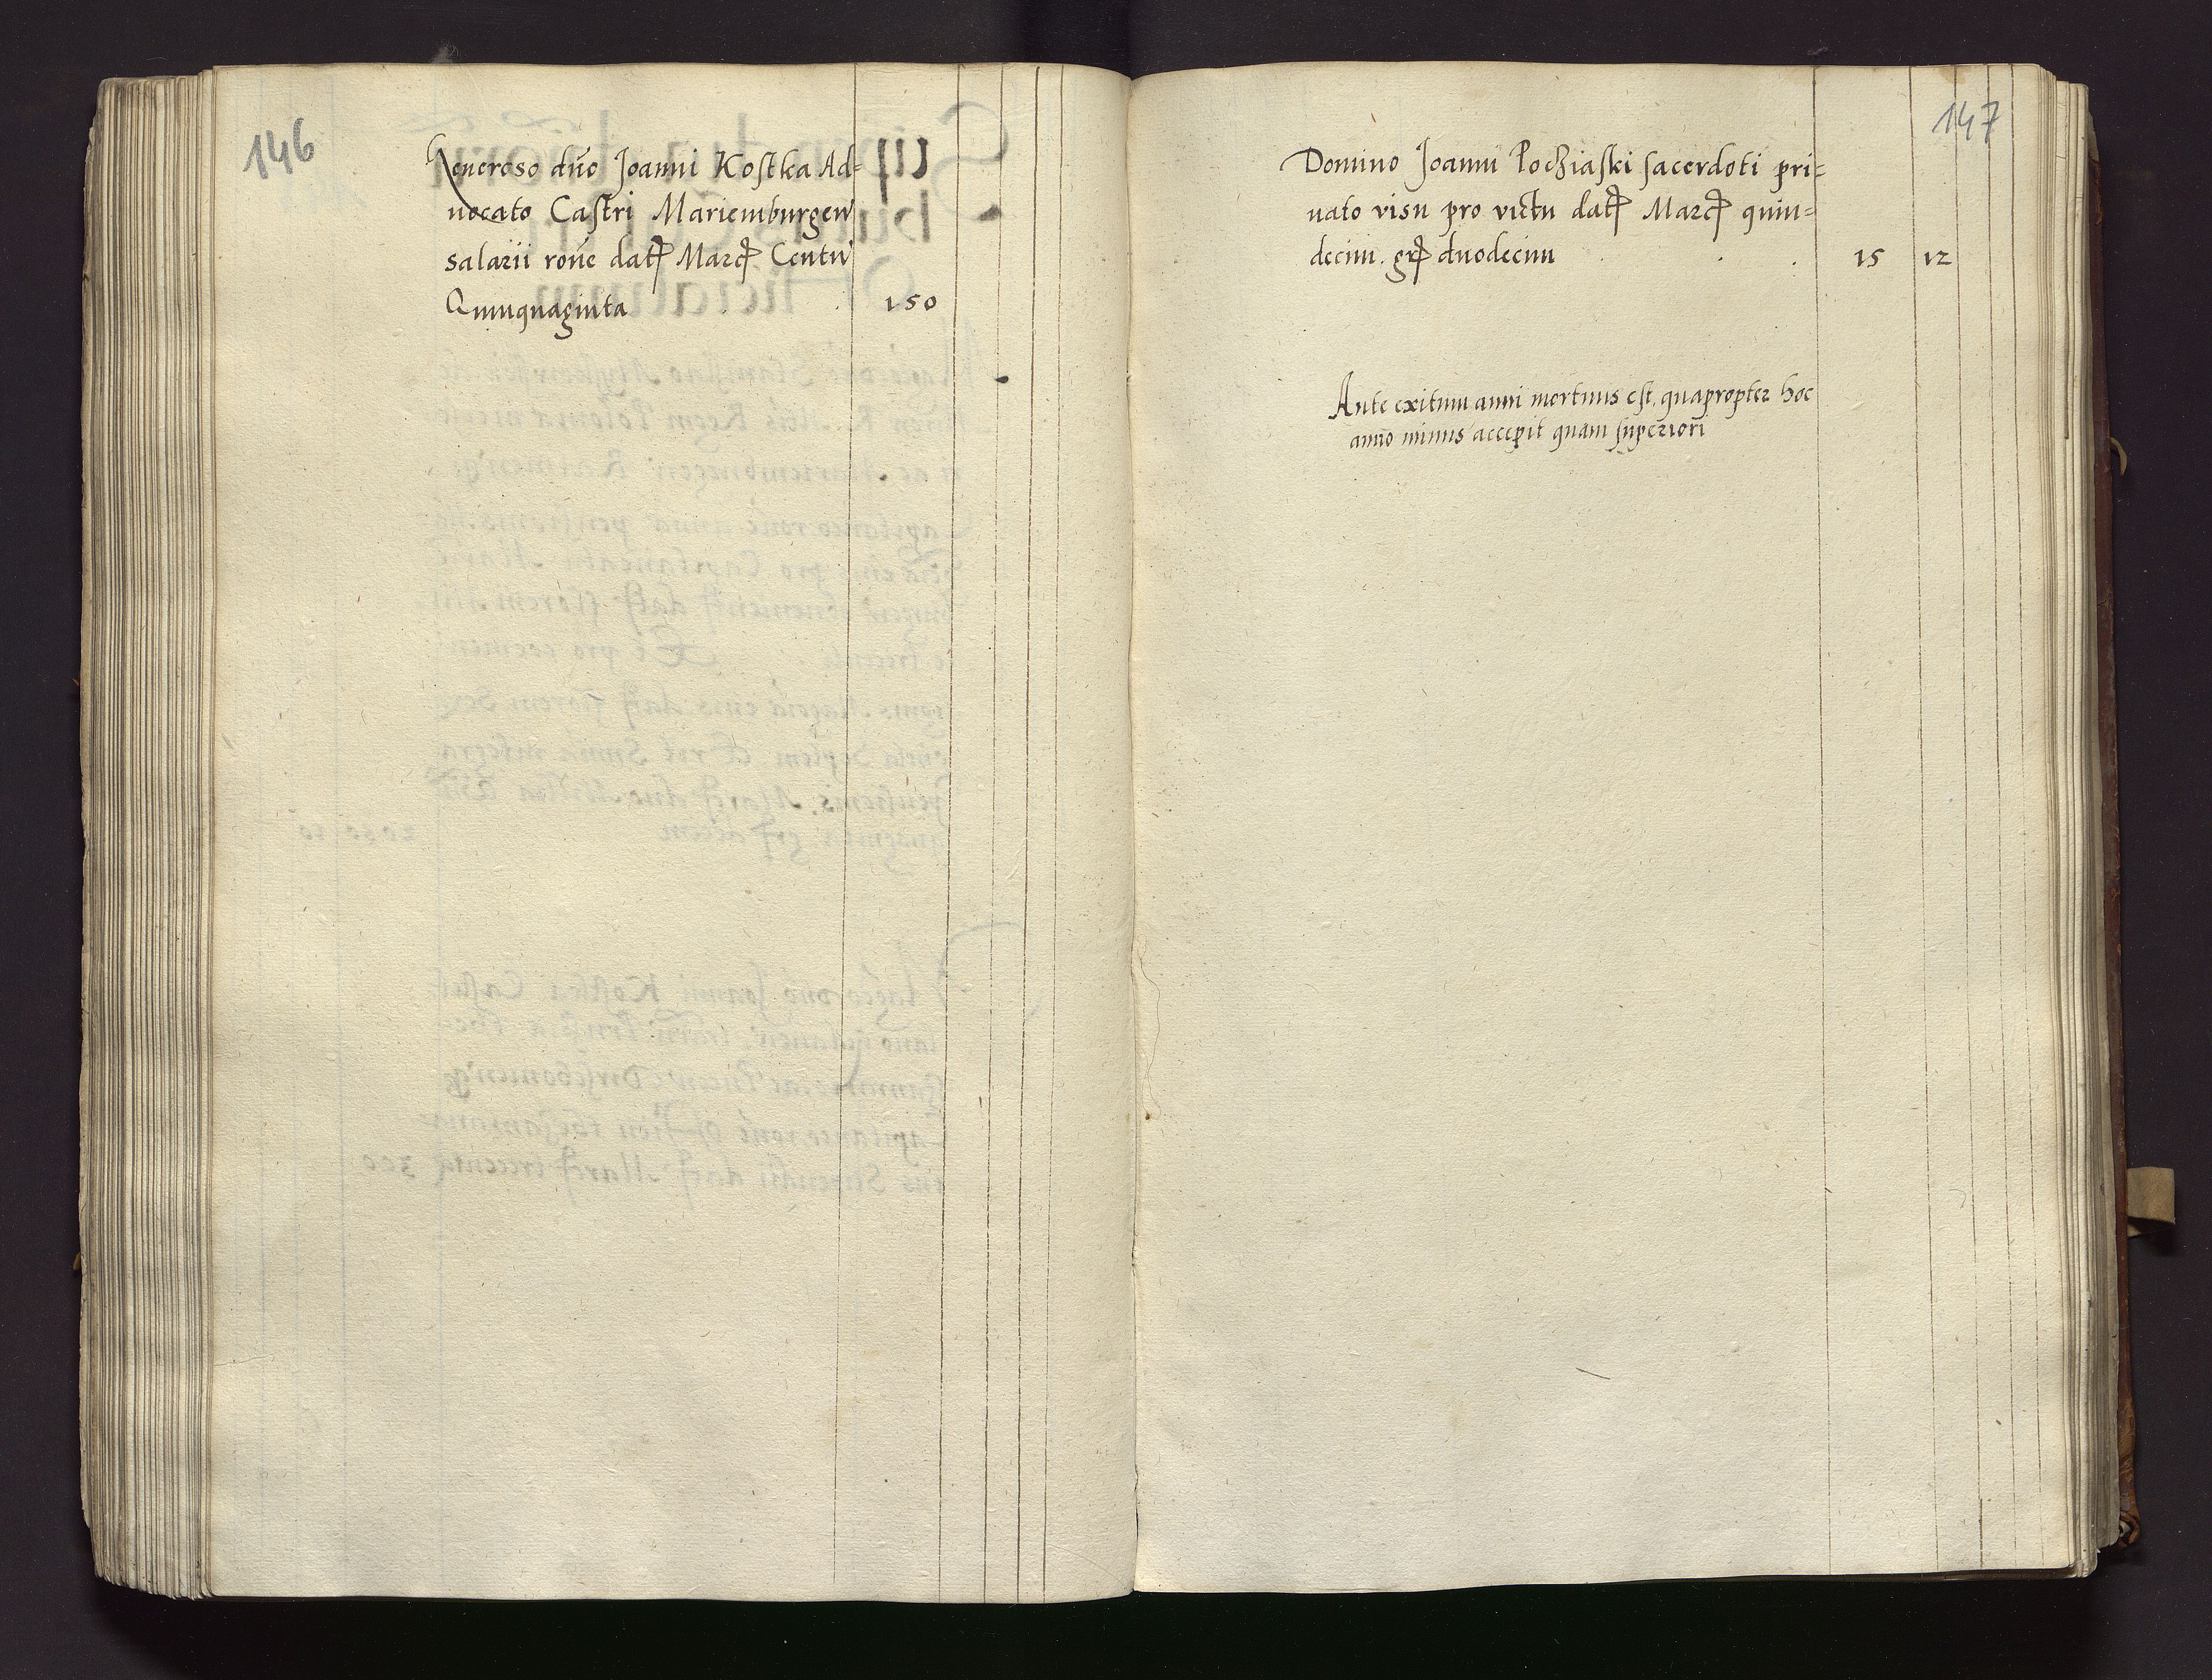 146
Generoso dno Joanni Kostka Ad=
uocato Castri Mariemburgen
salarii rone dat Marc Centu
Quinquaginta . . 150
147
Domino Joanni Pochiaski sacerdoti pri=
uato visu pro victu dat Marc quin=
decim. gr duodecim . . . 15 12
Ante exitum anni mortuus est, quapropter hoc
anno minus accepit quam superiori